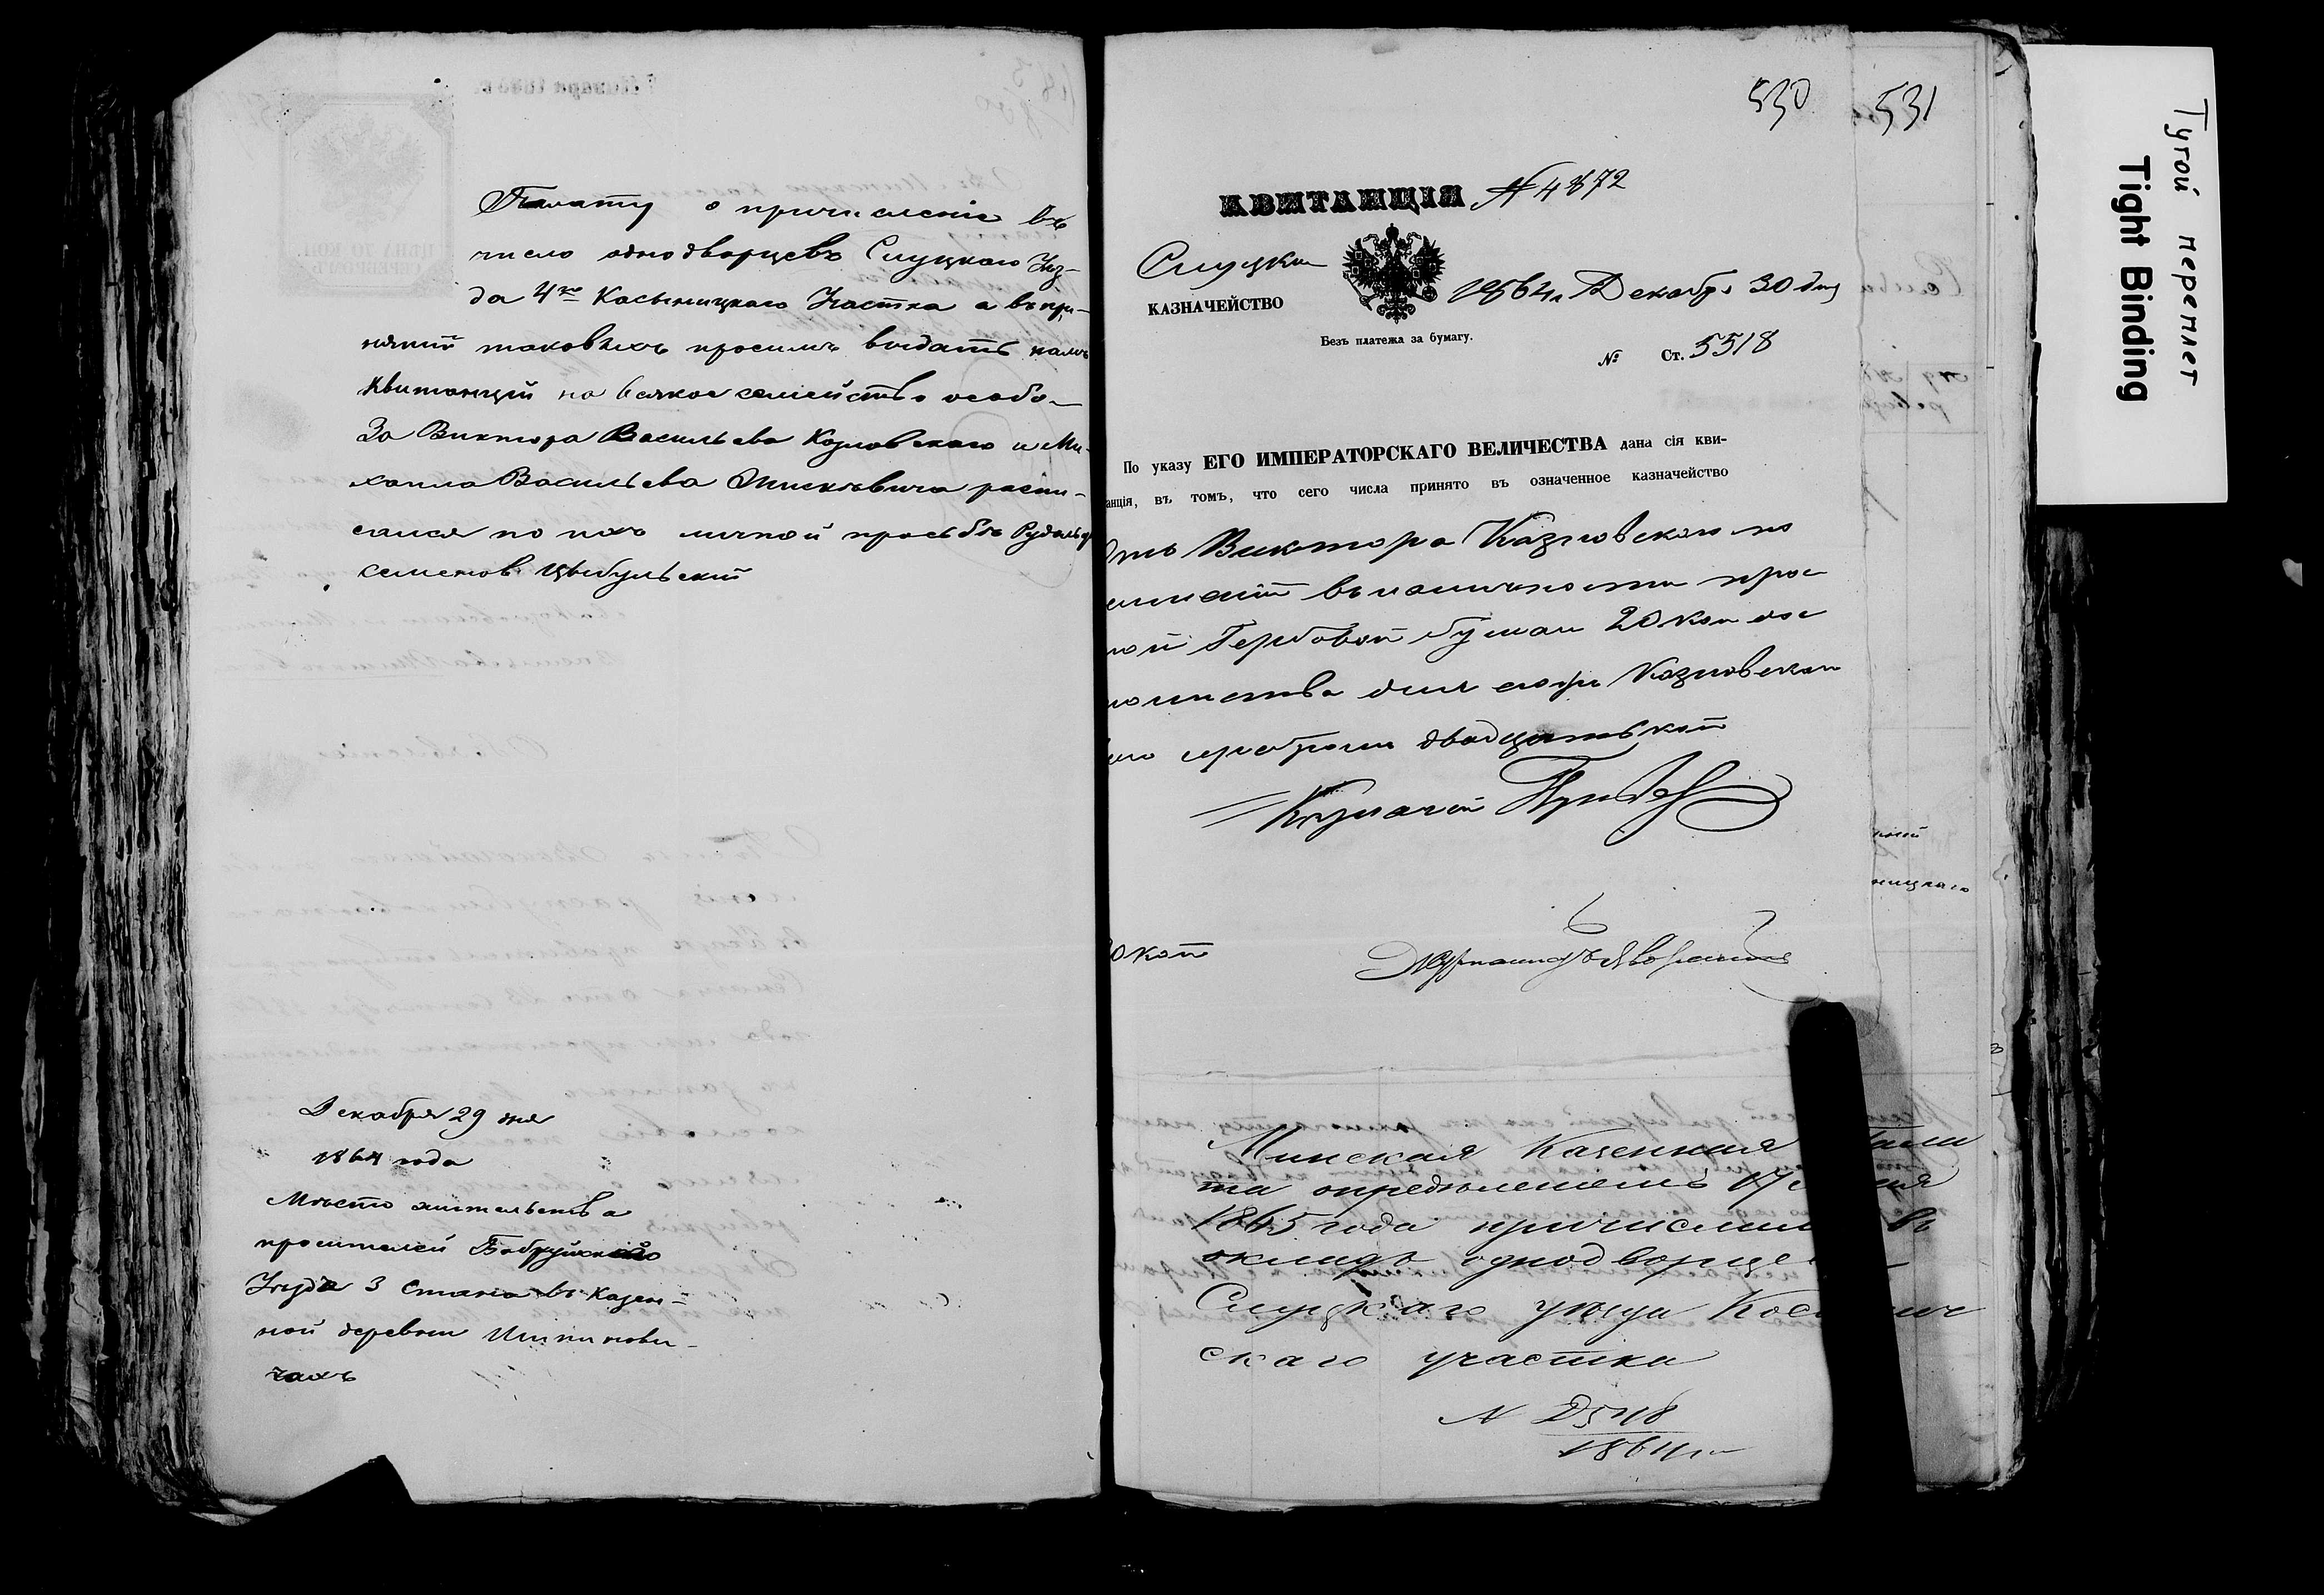 Палату о причисленіе въ
число однодворцевъ Слуцкаго Уѣз-
да 4го Касыницкаго Участка а въ при-
нятій таковыхъ просимъ выдать намъ
квитанцій на всякое семейство особо
За Виктора Васильева Козловскаго и Ми-
хаила Васильева распи-
сался по ихъ личной просьбѣ Рудольф
Семенов Цыбульский
Декабря 29 дня
1864 года
Мѣсто жительства
просителей Бобруйскаго
Уѣзда 3 Стана въ Казен-
ной деревни
чахъ
530
531
КВИТАНЦІЯ № 4872
Слуцкое
КАЗНАЧЕЙСТВО
1864 г. Декабря 30 дня
Безъ платежа за бумагу.
№ Ст. 5518
По указу ЕГО ИМПЕРАТОРСКАГО ВЕЛИЧЕСТВА дана сія кви-
анція, въ томъ, что сего числа принято въ означенное казначейство
Отъ Виктора Козловскаго по
въ наличности
Гербовой бумаги 20 коп
для Козловскаго
серебромъ двадцать коп
Казначей
0 коп
Минская Казенная Пала
та опредѣленіемъ 17
1865 года причислил въ
окладъ однодворце
Слуцкаго уѣзда
скаго участка
N
1864 г
ной
ницкаго
Тугой переплет
Tight Binding